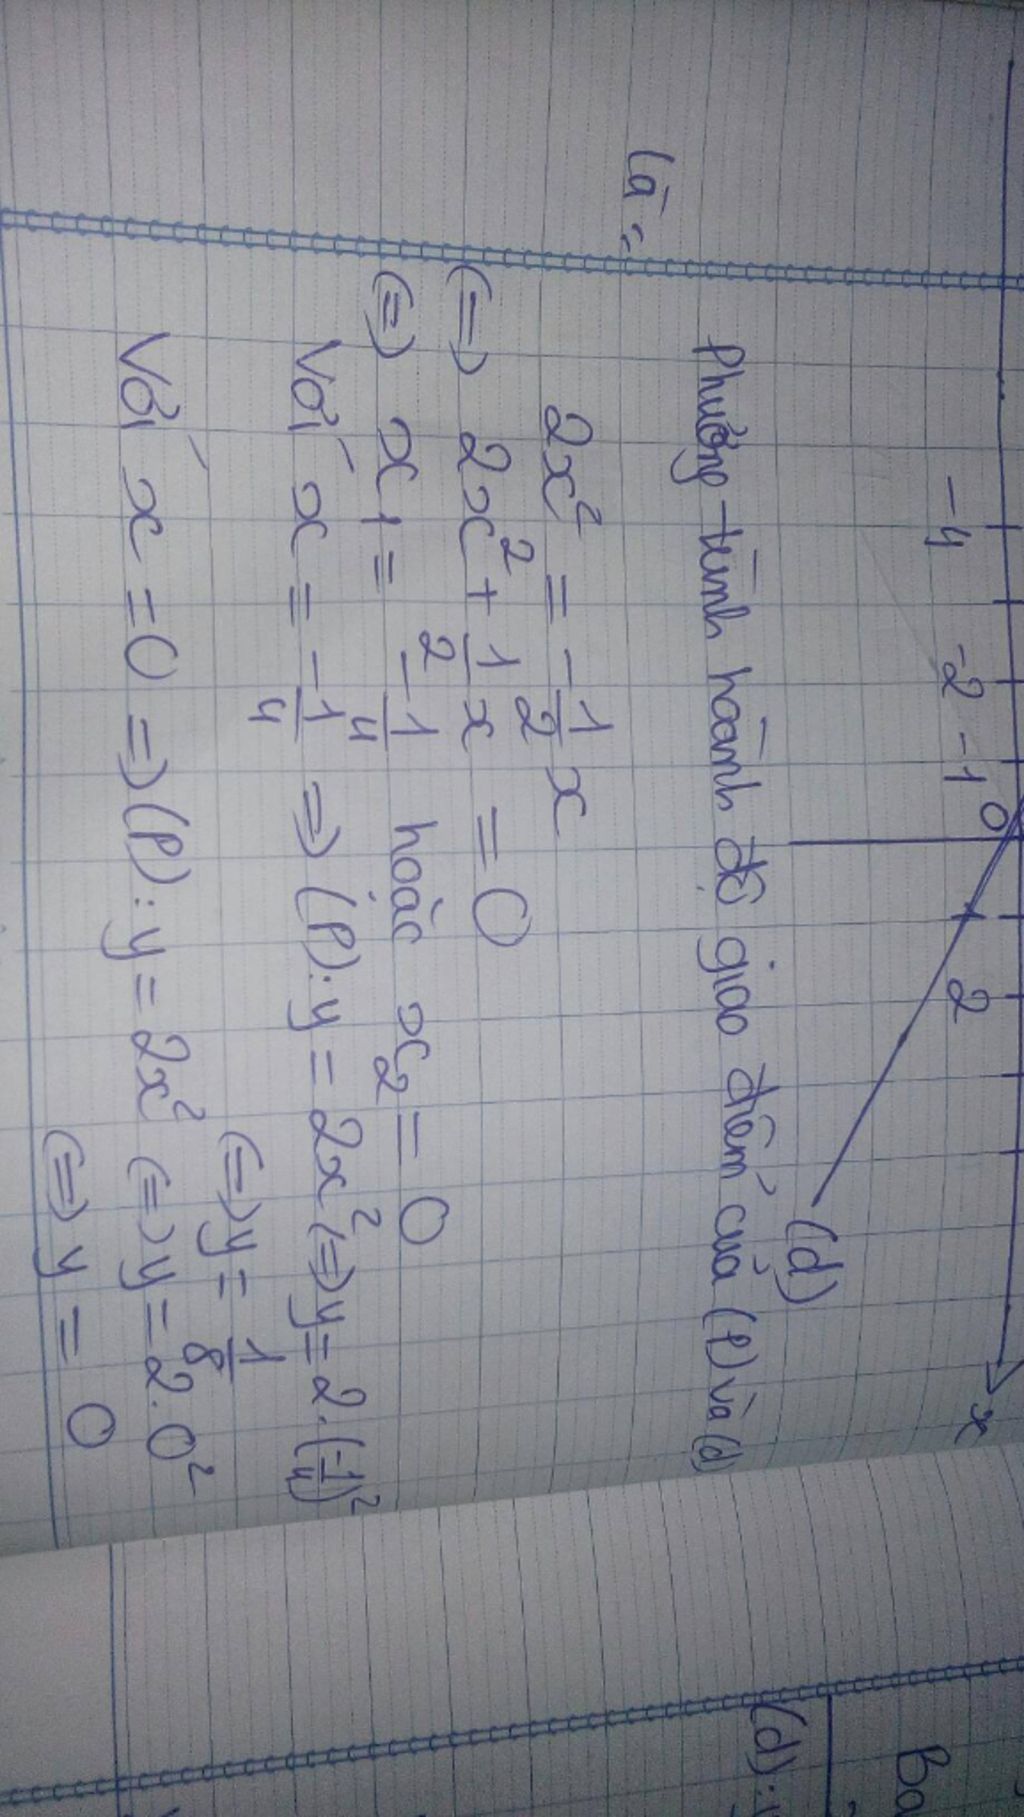 -4 -2 -1 0 2 x
(d)
Phương trình hoành độ giao điểm của (P) và (d)
là :
2x² = -1/2 x
(=) 2x² + 1/2 x = 0
(=) x1 = -1/4 hoặc x₂ = 0
Với x = -1/4 => (P): y = 2x² (=) y = 2.(-1/4)²
(=) y = 1/8
Với x = 0 => (P): y = 2x² (=) y = 2.0²
(=) y = 0
(d):